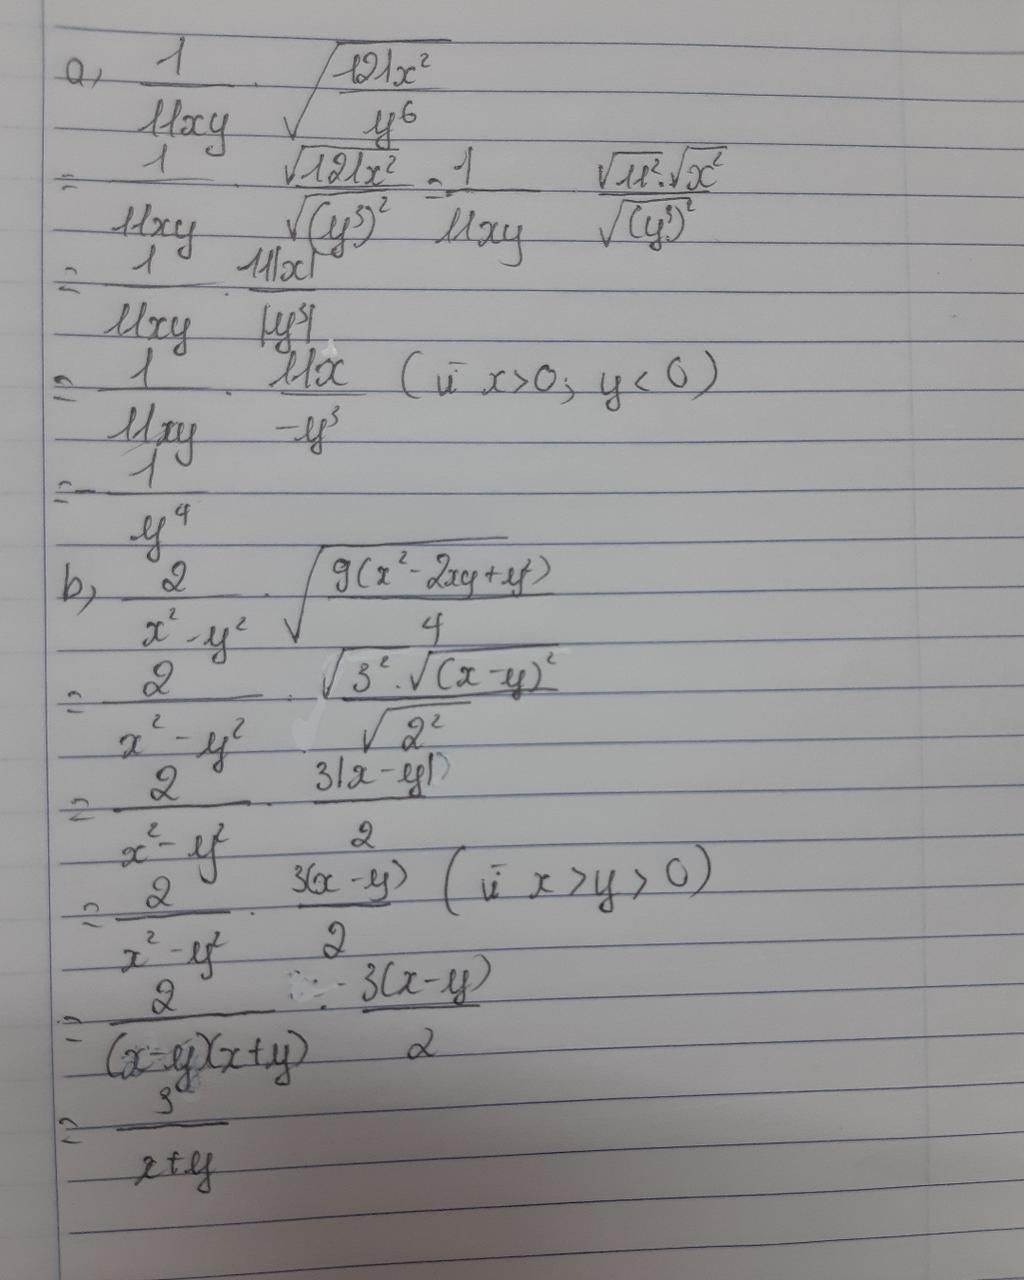 a, 1/11xy . √(121x²/y⁶)
= 1/11xy . √121x²/√(y³)² = 1/11xy √11².√x²/√(y³)²
= 1/11xy . 11|x|/|y³|
= 1/11xy . 11x/-y³ (vì x>0; y<0)
= - 1/y⁴
b, 2/x²-y² . √(9(x²-2xy+y²)/4)
= 2/x²-y² . √3².√(x-y)²/√2²
= 2/x²-y² . 3|x-y|/2
= 2/x²-y² . 3(x-y)/2 (vì x>y>0)
= 2/(x-y)(x+y) . 3(x-y)/2
= 3/x+y